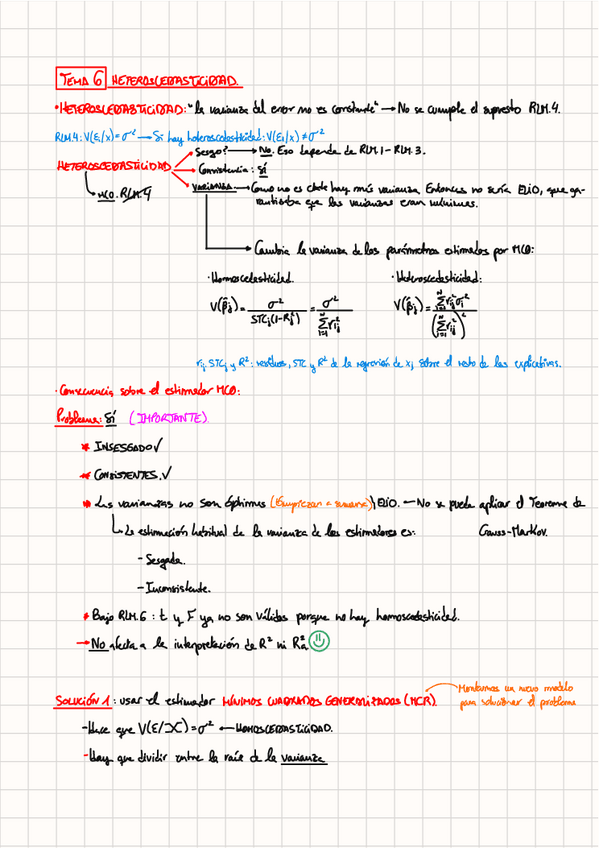 TEMA 6 HETEROSCEDASTICIDAD.
• HETEROSCEDASTICIDAD: "la varianza del error no es constante" → No se cumple el supuesto RLM.4.
RLM.4: V(εi/x) = σ² → Si hay heteroscedasticidad: V(εi/x) ≠ σ²
Sesgo? → No. Eso depende de RLM.1 - RLM.3.
HETEROSCEDASTICIDAD → Consistencia: Sí
MCO. RLM.4
VARIANZA → Como no es cte hay más varianza. Entonces no sería ELIO, que ga-
rantizaba que las varianzas eran mínimas.
Cambia la varianza de los parámetros estimados por MCO:
· Homoscedasticidad. · Heteroscedasticidad:
V(β̂j) = σ² / STCj(1-Rj²) = σ² / Σ r̂ij² V(β̂j) = Σ r̂ij² σi² / (Σ r̂ij²)²
rij, STCj y R²: residuos, STC y R² de la regresión de xj sobre el resto de las explicativas.
· Consecuencias sobre el estimador MCO:
Problema: Sí (IMPORTANTE).
* INSESGADO ✓
* CONSISTENTES. ✓
* Las varianzas no son óptimas (Empiezan a sumarse) ELIO. → No se puede aplicar el Teorema de
Gauss-Markov.
↳ La estimación habitual de la varianza de los estimadores es:
- Sesgada.
- Inconsistente.
* Bajo RLM.6: t y F ya no son válidos porque no hay homoscedasticidad.
→ No afecta a la interpretación de R² ni Ra²
SOLUCIÓN 1: usar el estimador MÍNIMOS CUADRADOS GENERALIZADOS (MCR).
Montamos un nuevo modelo
para solucionar el problema
- Hace que V(ε/X) = σ² ← HOMOSCEDASTICIDAD.
- Hay que dividir entre la raíz de la varianza